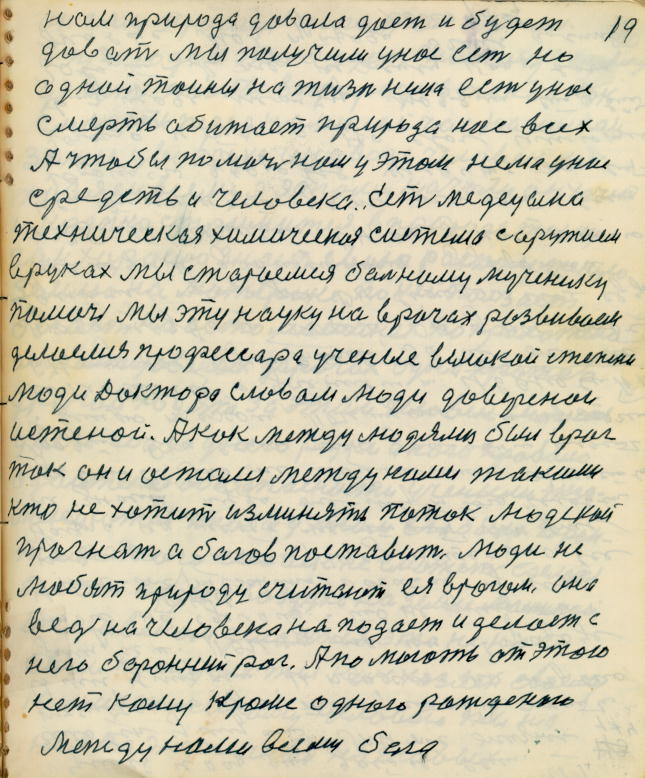 19
нам природа довала дает и будет
доват мы получили уное ест но
одной тоины на жизн наша ест уное
смерть обитает природа нас всех
А чтобы помоч ному этом нема уное
средств а человека. Ест медецина
техническая химическая система соружием
вруках мы стараемся балному мученику
помочи мы эту науку на врачах розвиваем
делаемся професcара ученые високой степени
люди Доктора словам люди довереной
истеной. А как между людями был враг
так они остали между нами такими
кто не хотит изминять поток людской
прогнат а багов поставит. Люди не
любят природу считают ея врогом. она
вед на человека на подает и делает с
него боронний рог. А помогать от этого
нет кому кроме одного рожденого
между нами всеми бога